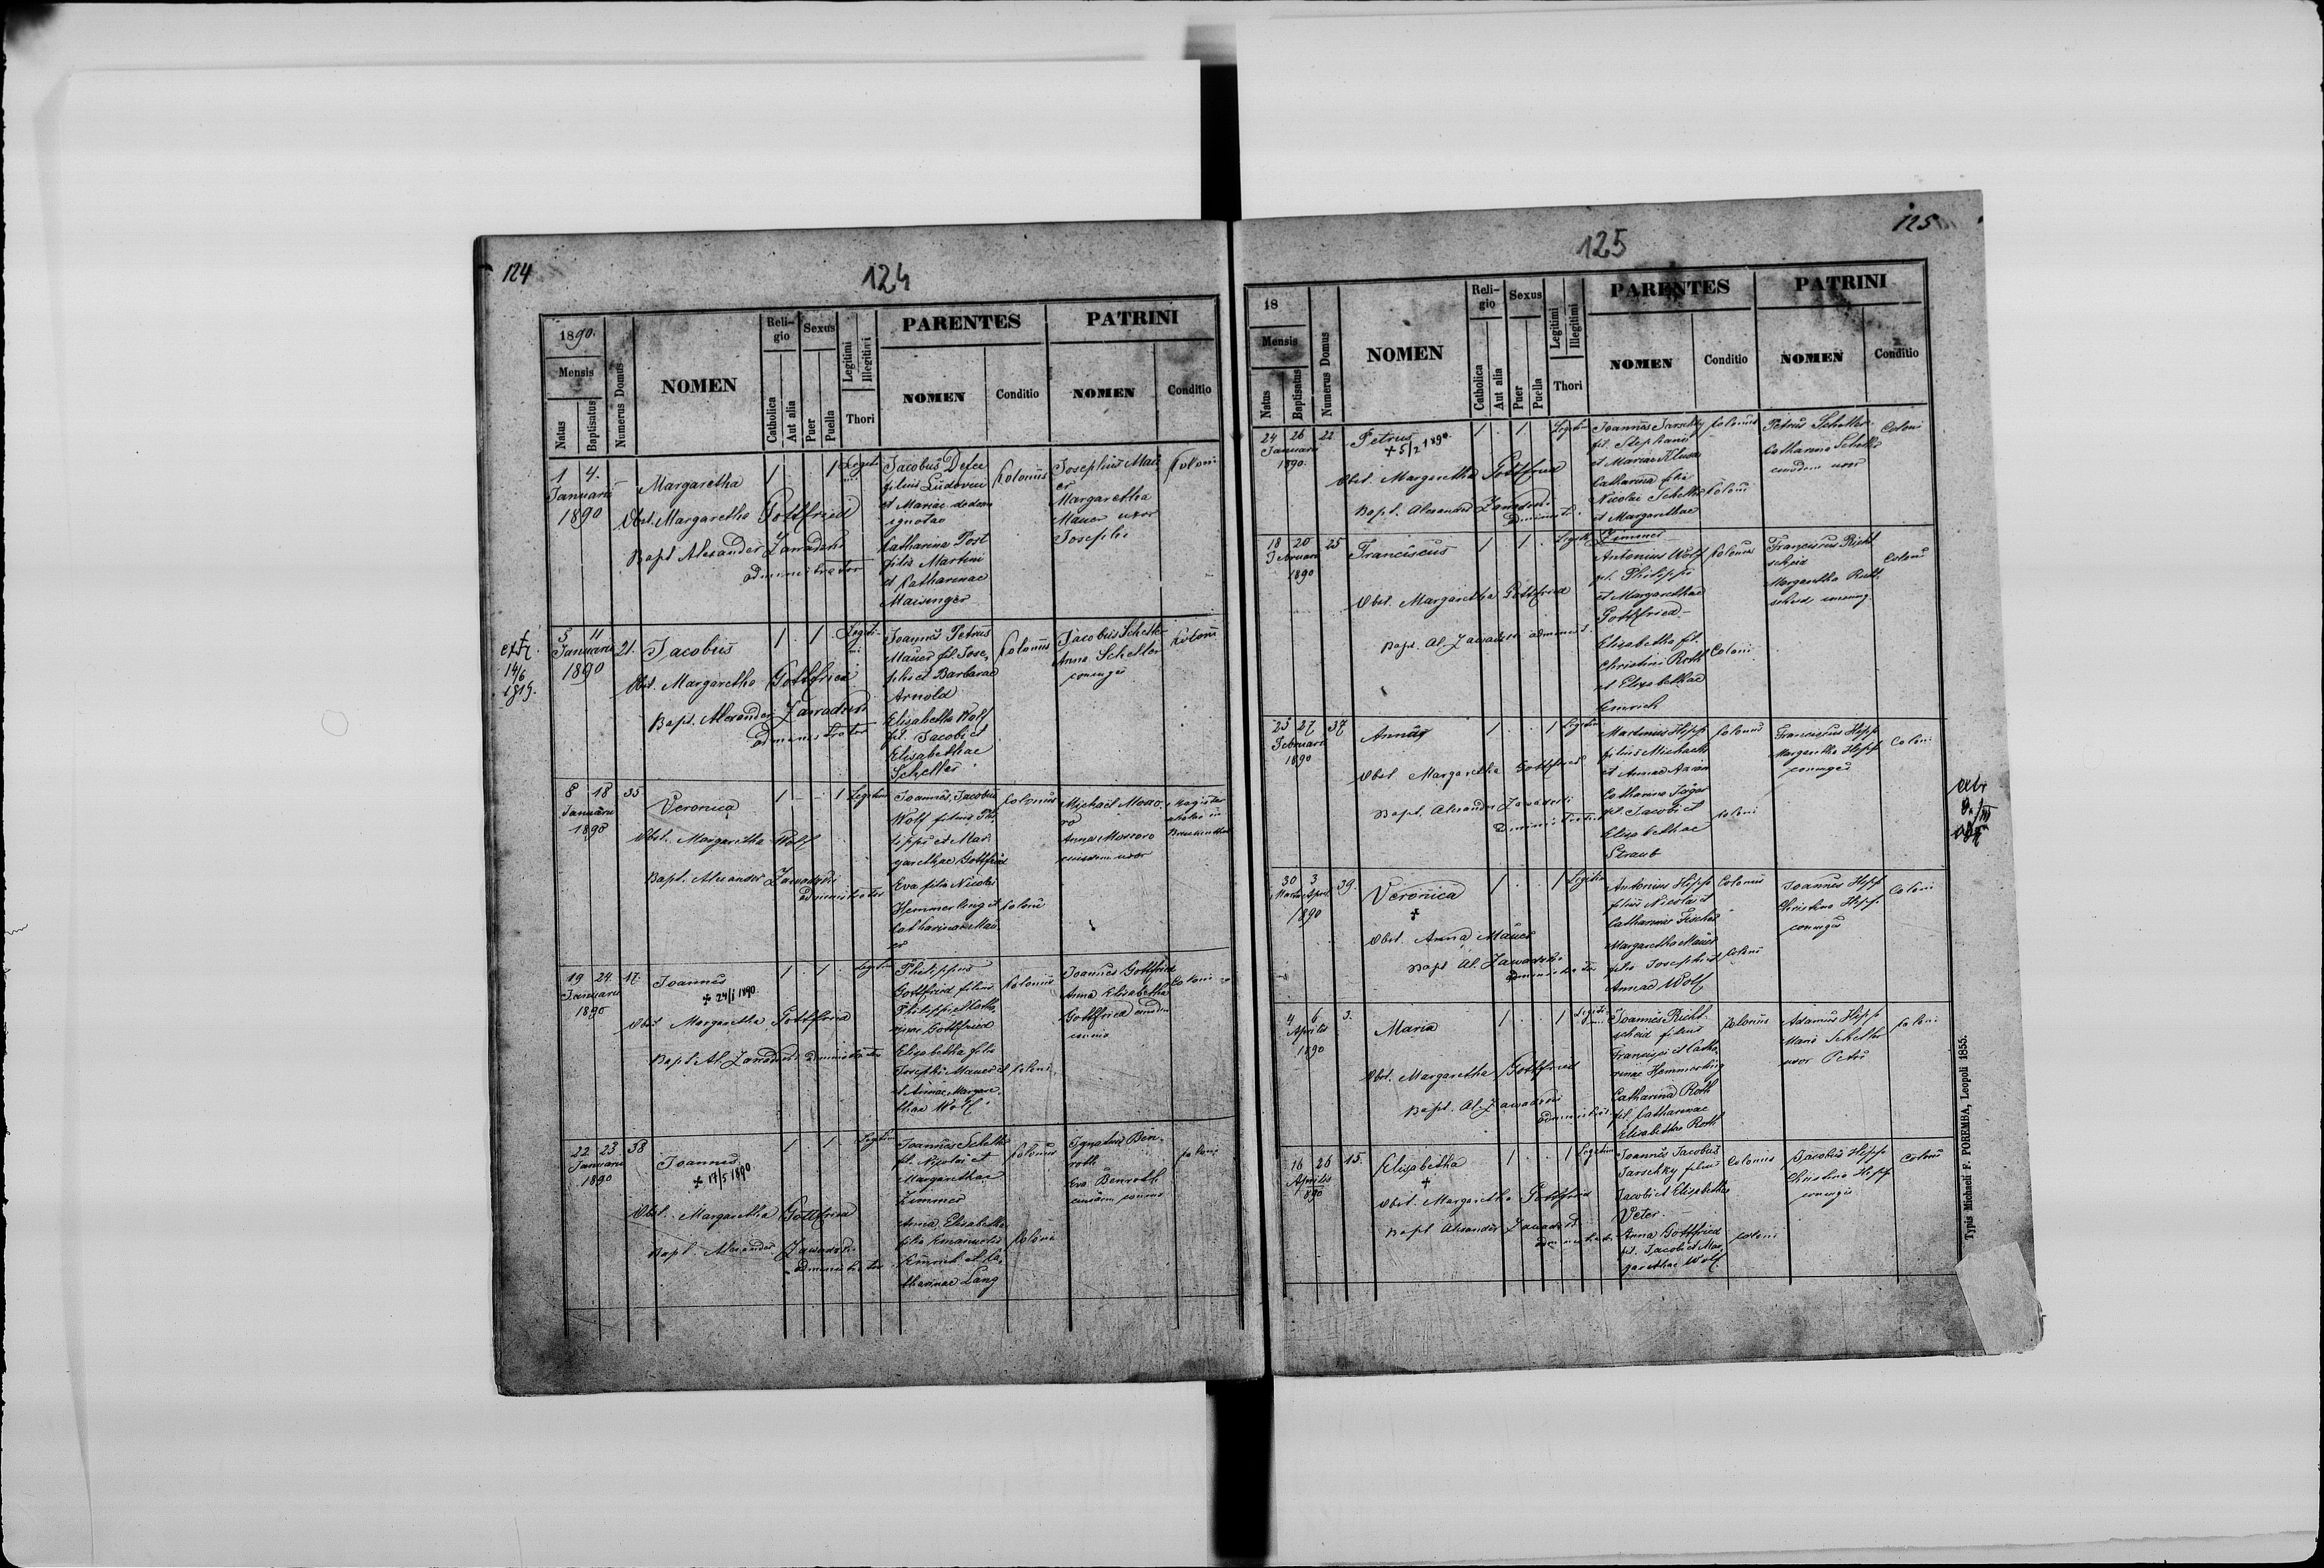 124
124
1890.
Mensis
Natus
Baptisatus
Numerus Domus
NOMEN
Reli-
gio
Catholica
Aut alia
Sexus
Puer
Puella
Legitimi
Illegitimi
Thori
PARENTES
NOMEN
Conditio
PATRINI
NOMEN
Conditio
1 4.
Januarii
1890
Margaretha
Obst. Margaretha Gottfried
Bapt Alexander Zawadzki
administrator
1 . . 1 Legiti
mi
Jacobus
filius Ludovici
et Mariae dedom
ignotae
Catharina Post
filia Martini
et Catharinae
Maisinger
Colonus
Josephus Mau
er
Margaretha
Mauer uxor
Josephi
Coloni
extr.
14/6
1819.
5 11
Januarii
1890
21.
Jacobus
Obst. Margaretha Gottfried
Bapt. Alexander Zawadzki
administrator
1 . 1 . Legiti-
mi
Joannes Petrus
Mauer fil. Jose,
phi et Barbarae
Arnold
Elisabetha Wolf
fil. Jacobi et
Elisabethae
Scheller
Colonus
Jacobus Scheller
Anna Scheller
conjuges
Coloni
8 18
Januarii
1890
35
Veronica
Obst. Margaretha Wolf
Bapt. Alexander Zawadzki
administrator
1 - - 1 Legitimi
Joannes Jacobus
Wolf filius Phi
lippi et Mar
garethae Gottfried
Eva filia Nicolai
Hemmerling et
Catharinae Mau
er
Colonus
Coloni
Michael Mosso
ro
Anna Mossoro
ejusdem uxor
Magister
scholae in
19 24
Januarii
1890
17.
Joannes
+ 24/1 1890.
Obst Margaretha Gottfried
Bapt Al. Zawadzki administrator
1 . 1 . Legitimi
Philippus
Gottfried filius
Philippi et Catha,
rinae Gottfried
Elisabetha filia
Josephi Mauer et
et Annae Margare,
thae Wolf
Colonus
Coloni
Joannes Gottfried
Anna Elisabetha
Gottfried
Coloni
22 23
Januarii
1890
38
Joannes
+ 17/5 1890
Obst. Margaretha Gottfried
Bapt. Alexander Zawadzki
administrator
1 . 1 . Legitimi
Joannes Scheller
fil. Nicolai et
Margarethae
Zimmer
Anna Elisabetha
filia Emanuelis
Emmrich et Ca,
tharinae Lang
Colonus
Coloni
Ignatius Ben,
roth
Eva Benroth
Coloni
125
125
18
Mensis
Natus
Baptisatus
Numerus Domus
NOMEN
Reli-
gio
Catholica
Aut alia
Sexus
Puer
Puella
Legitimi
Illegitimi
Thori
PARENTES
NOMEN
Conditio
PATRINI
NOMEN
Conditio
24 26
Januarii
1890.
22
Petrus
+ 5/2 1890.
Obst. Margaretha Gottfried
Bapt. Alexander Zawadzki
administ.
1 . 1 . Legitim
Joannes Jarschky
fil. Stephani
et Mariae Klusa
Catharina filia
Nicolai Scheller
et Margarethae
Zimmer
Colonus
Coloni
Petrus Scheller
Catharina Scheller
ejusdem uxor
Coloni
18 20
Februarii
1890
25
Franciscus
Obst. Margaretha Gottfried
Bapt. Al. Zawadzki administ.
1 . 1 . Legiti
Antonius Wolf
fil. Philippi
et Margarethae
Gottfried
Elisabetha fil.
Christini Roth
et Elisabethae
Emrich
Colonus
Coloni
Franciscus Richt
scheid
Margaretha Richt
scheid
Coloni
25 27
Februarii
1890
37
Anna
Obst Margaretha Gottfried
Bapt. Alexander Zawadzki
administrator
1 . . 1 Legitim
Martinus Hipp
filius Michaelis
et Annae
Catharina
fil. Jacobi et
Elisabethae
Straub
Colonus
Coloni
Franciscus Hipp
Margaretha Hipp
conjuges
Coloni
extr
30 3
Martii April.
1890
39.
Veronica
+
Obst. Anna Mauer
Bapt Al. Zawadzki
administrator
1 . . 1 Legitim
Antonius Hipp
filius Nicolai et
Catharinae Fischer
Margaretha Mauer
filia Josephi et
Annae Wolf
Colonus
Coloni
Joannes Hipp
Christina Hipp
conjuges
Coloni
4 6
Aprilis
1890
3.
Maria
Obst. Margaretha Gottfried
Bapt. Al. Zawadzki
administr.
1 . . 1 Legiti
mi
Joannes Richt
scheid filius
Francisci et Catha,
rinae Hemmerling
Catharina Roth
fil. Catharinae
Elisabetha Roth
Colonus
Adamus Hipp
Maria Scheller
uxor Petri
Coloni
16 26
Aprilis
1890
15.
Elisabetha
+
Obst. Margaretha Gottfried
Bapt Alexander Zawadzki
administrator
1 . . 1 Legitim
Joannes Jacobus
Jarschky filius
Jacobi et Elisabethae
Veter
Anna Gottfried
fil. Jacobi et Mar,
garethae Wolf
Colonus
Coloni
Jacobus Hipp
Christina Hipp
conjuges
Coloni
Typis Michaeli F. POREMBA, Leopoli 1855.